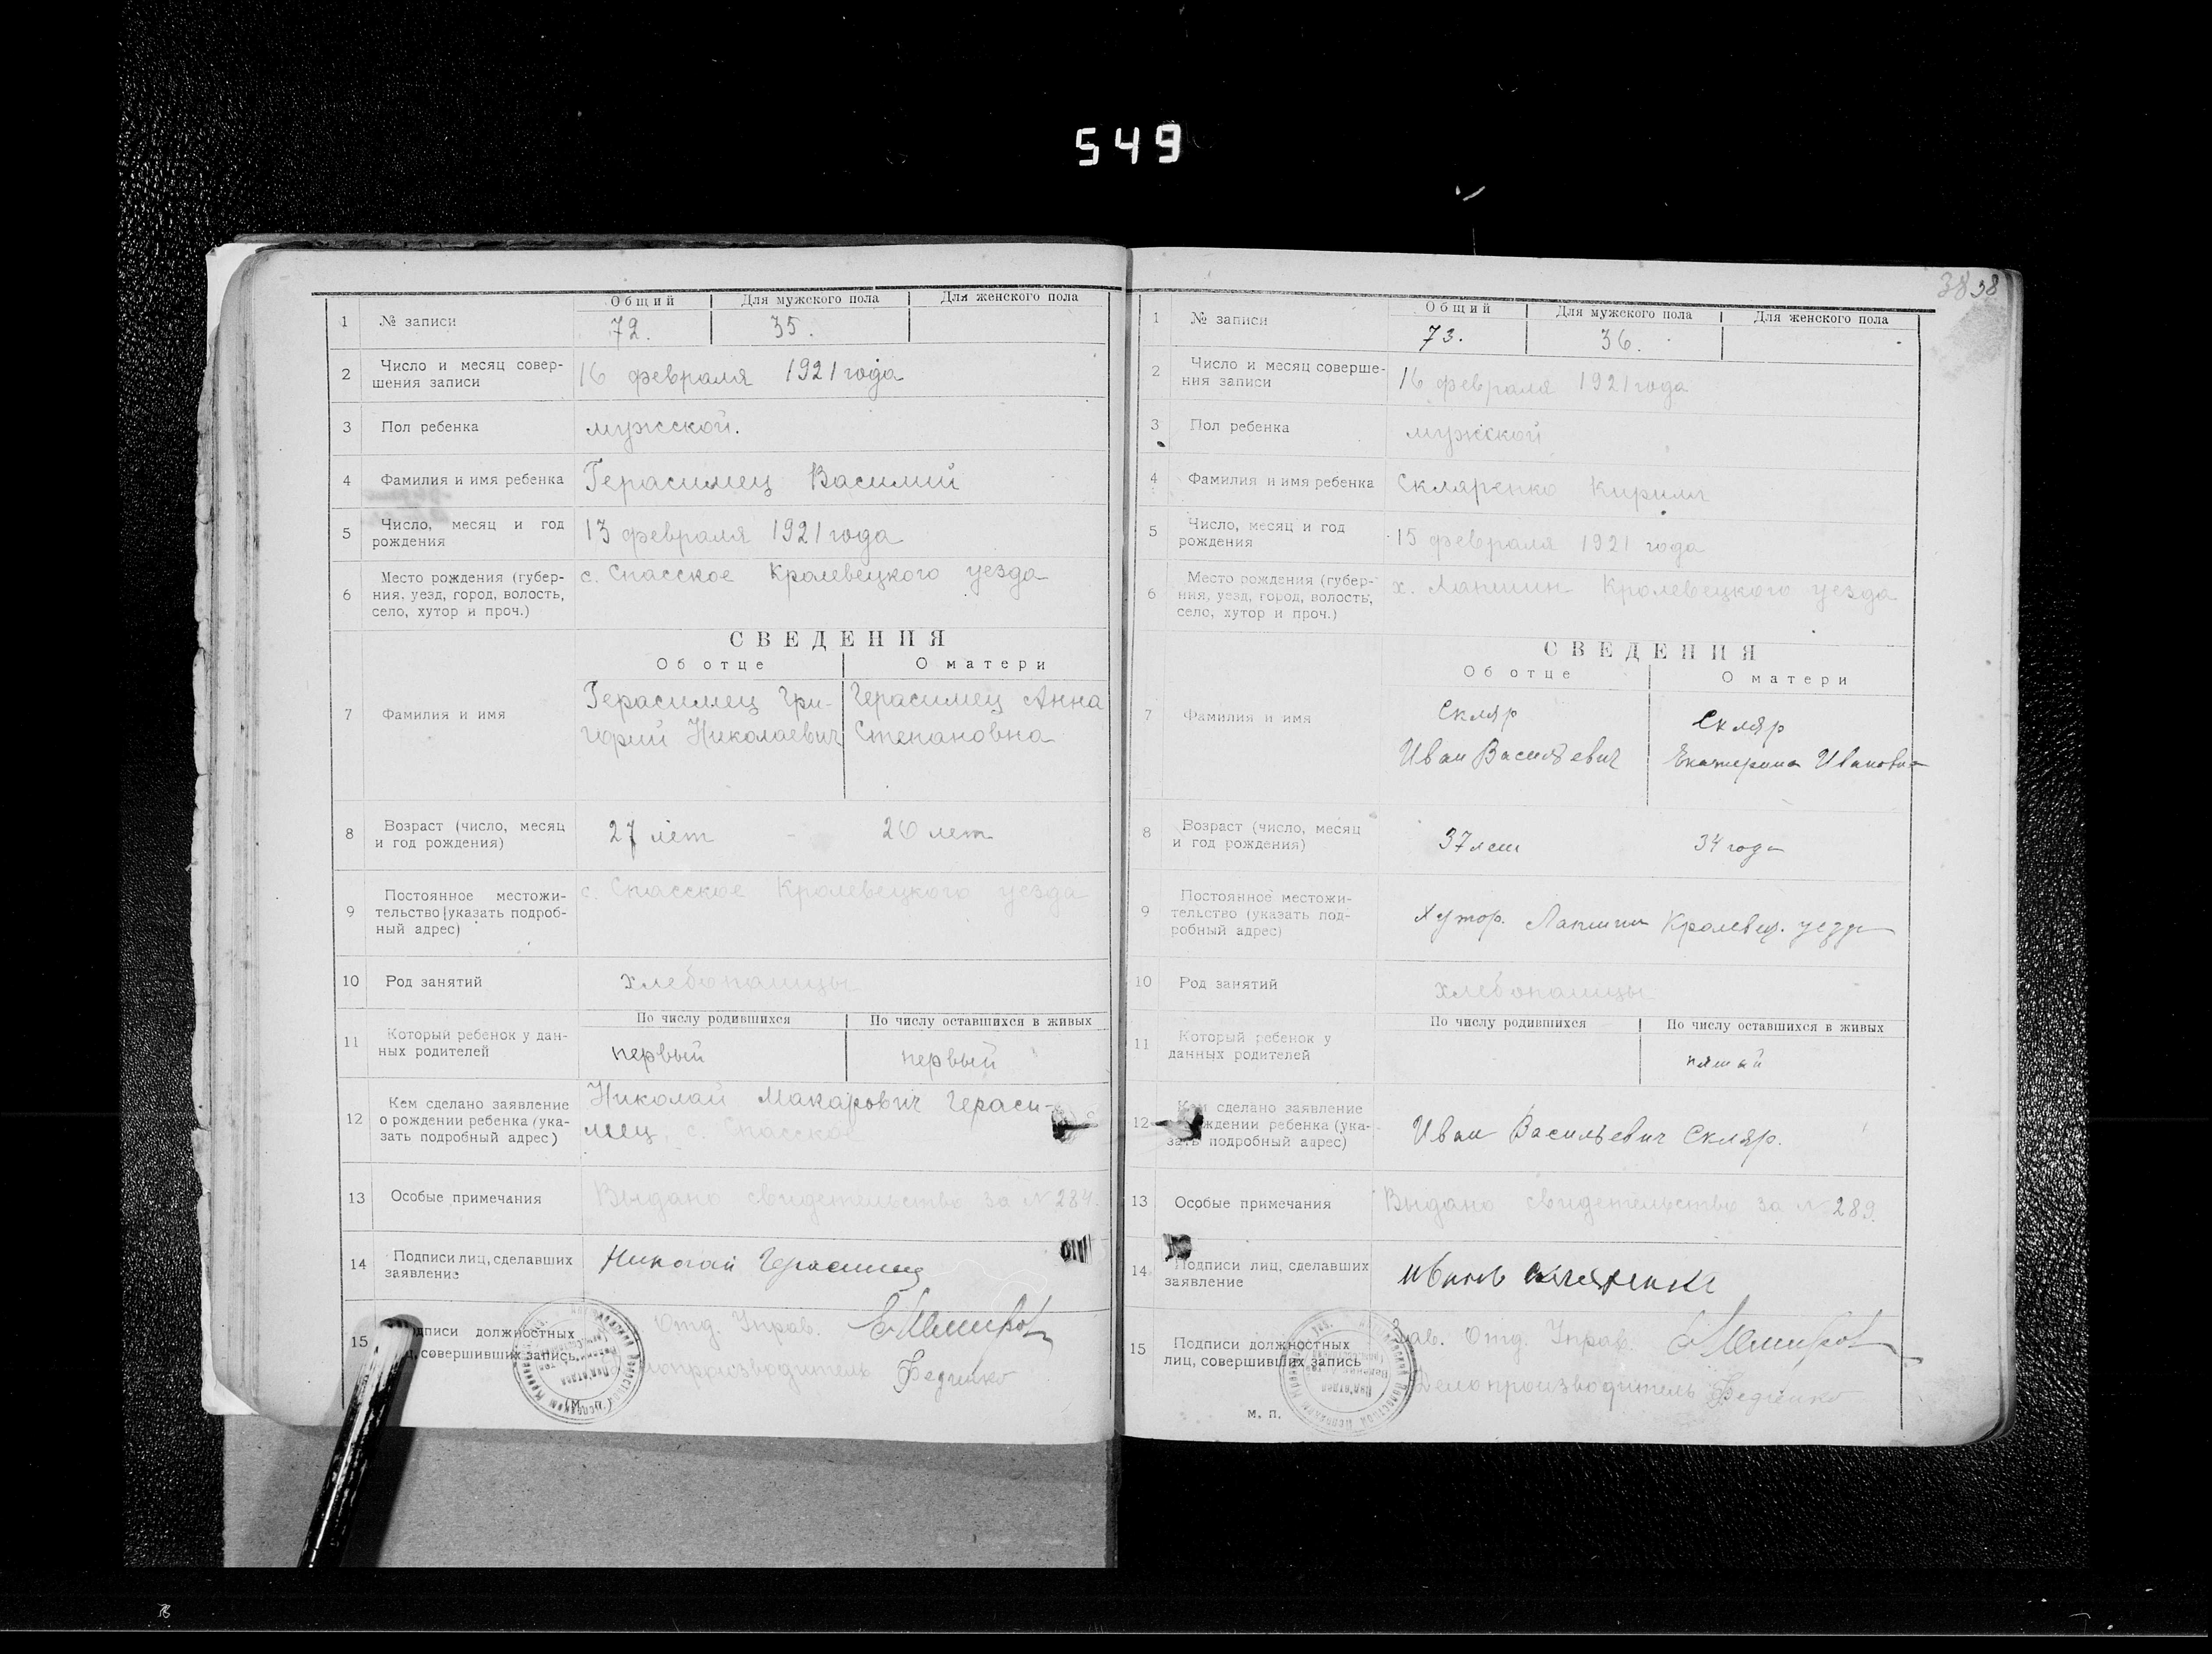 549
Общий Для мужского пола Для женского пола
1 № записи 72. 35.
2 Число и месяц совер-
шения записи
16 февраля 1921 года
3 Пол ребенка мужсской.
4 Фамилия и имя ребенка Герасимец Василий
5 Число, месяц и год
рождения
13 февраля 1921 года
6 Место рождения (губер-
ния, уезд, город, волость,
село, хутор и проч.)
с. Спасское Кролевецкого уезда
СВЕДЕНИЯ
Об отце О матери
7 Фамилия и имя
Герасимец Гри- Герасимец Анна
горий Николаевич Степановна
8 Возраст (число, месяц
и год рождения)
27 лет - 20 лет
9 Постоянное местожи-
тельство (указать подроб-
ный адрес)
с. Спасское Кролевецкого уезда
10 Род занятий хлебопашцы
По числу родившихся По числу оставшихся в живых
11 Который ребенок у дан-
ных родителей
первый первый
12 Кем сделано заявление
о рождении ребенка (ука-
зать подробный адрес)
Николай Макарович Гераси-
мец, с. Спасское
13 Особые примечания Выдано свидетельство за № 284.
14 Подписи лиц, сделавших
заявление
Николай Герасимец
15 должностных
совершивших запись
Отд. Управ.
Федченко
(М. П.)
38 38
Общий Для мужского пола Для женского пола
1 № записи 73. 36.
2 Число и месяц соверше-
ния записи
16 февраля 1921 года
3 Пол ребенка мужской
4 Фамилия и имя ребенка Скляренко Кирилл
5 Число, месяц и год
рождения
15 февраля 1921 года
6 Место рождения (губер-
ния, уезд, город, волость,
село, хутор и проч.)
х. Лапшин Кролевецкого уезда
СВЕДЕНИЯ
Об отце О матери
7 Фамилия и имя
Скляр Скляр
Иван Васильевич Екатерина Ивановна
8 Возраст (число, месяц
и год рождения)
37 лет 34 года
9 Постоянное местожи-
тельство (указать под-
робный адрес)
Хутор. Лапшин Кролевец. уезда
10 Род занятий хлебопашцы
По числу родившихся По числу оставшихся в живых
11 Который ребенок у
данных родителей
пятый
12 Кем сделано заявление
рождении ребенка (ука-
зать подробный адрес)
Иван Васильевич Скляр.
13 Особые примечания Выдано свидетельство за № 289.
14 Подписи лиц, сделавших
заявление
15 Подписи должностных
лиц, совершивших запись
Зав. Отд. Управ.
Делопроизводитель Федченко
М. П.